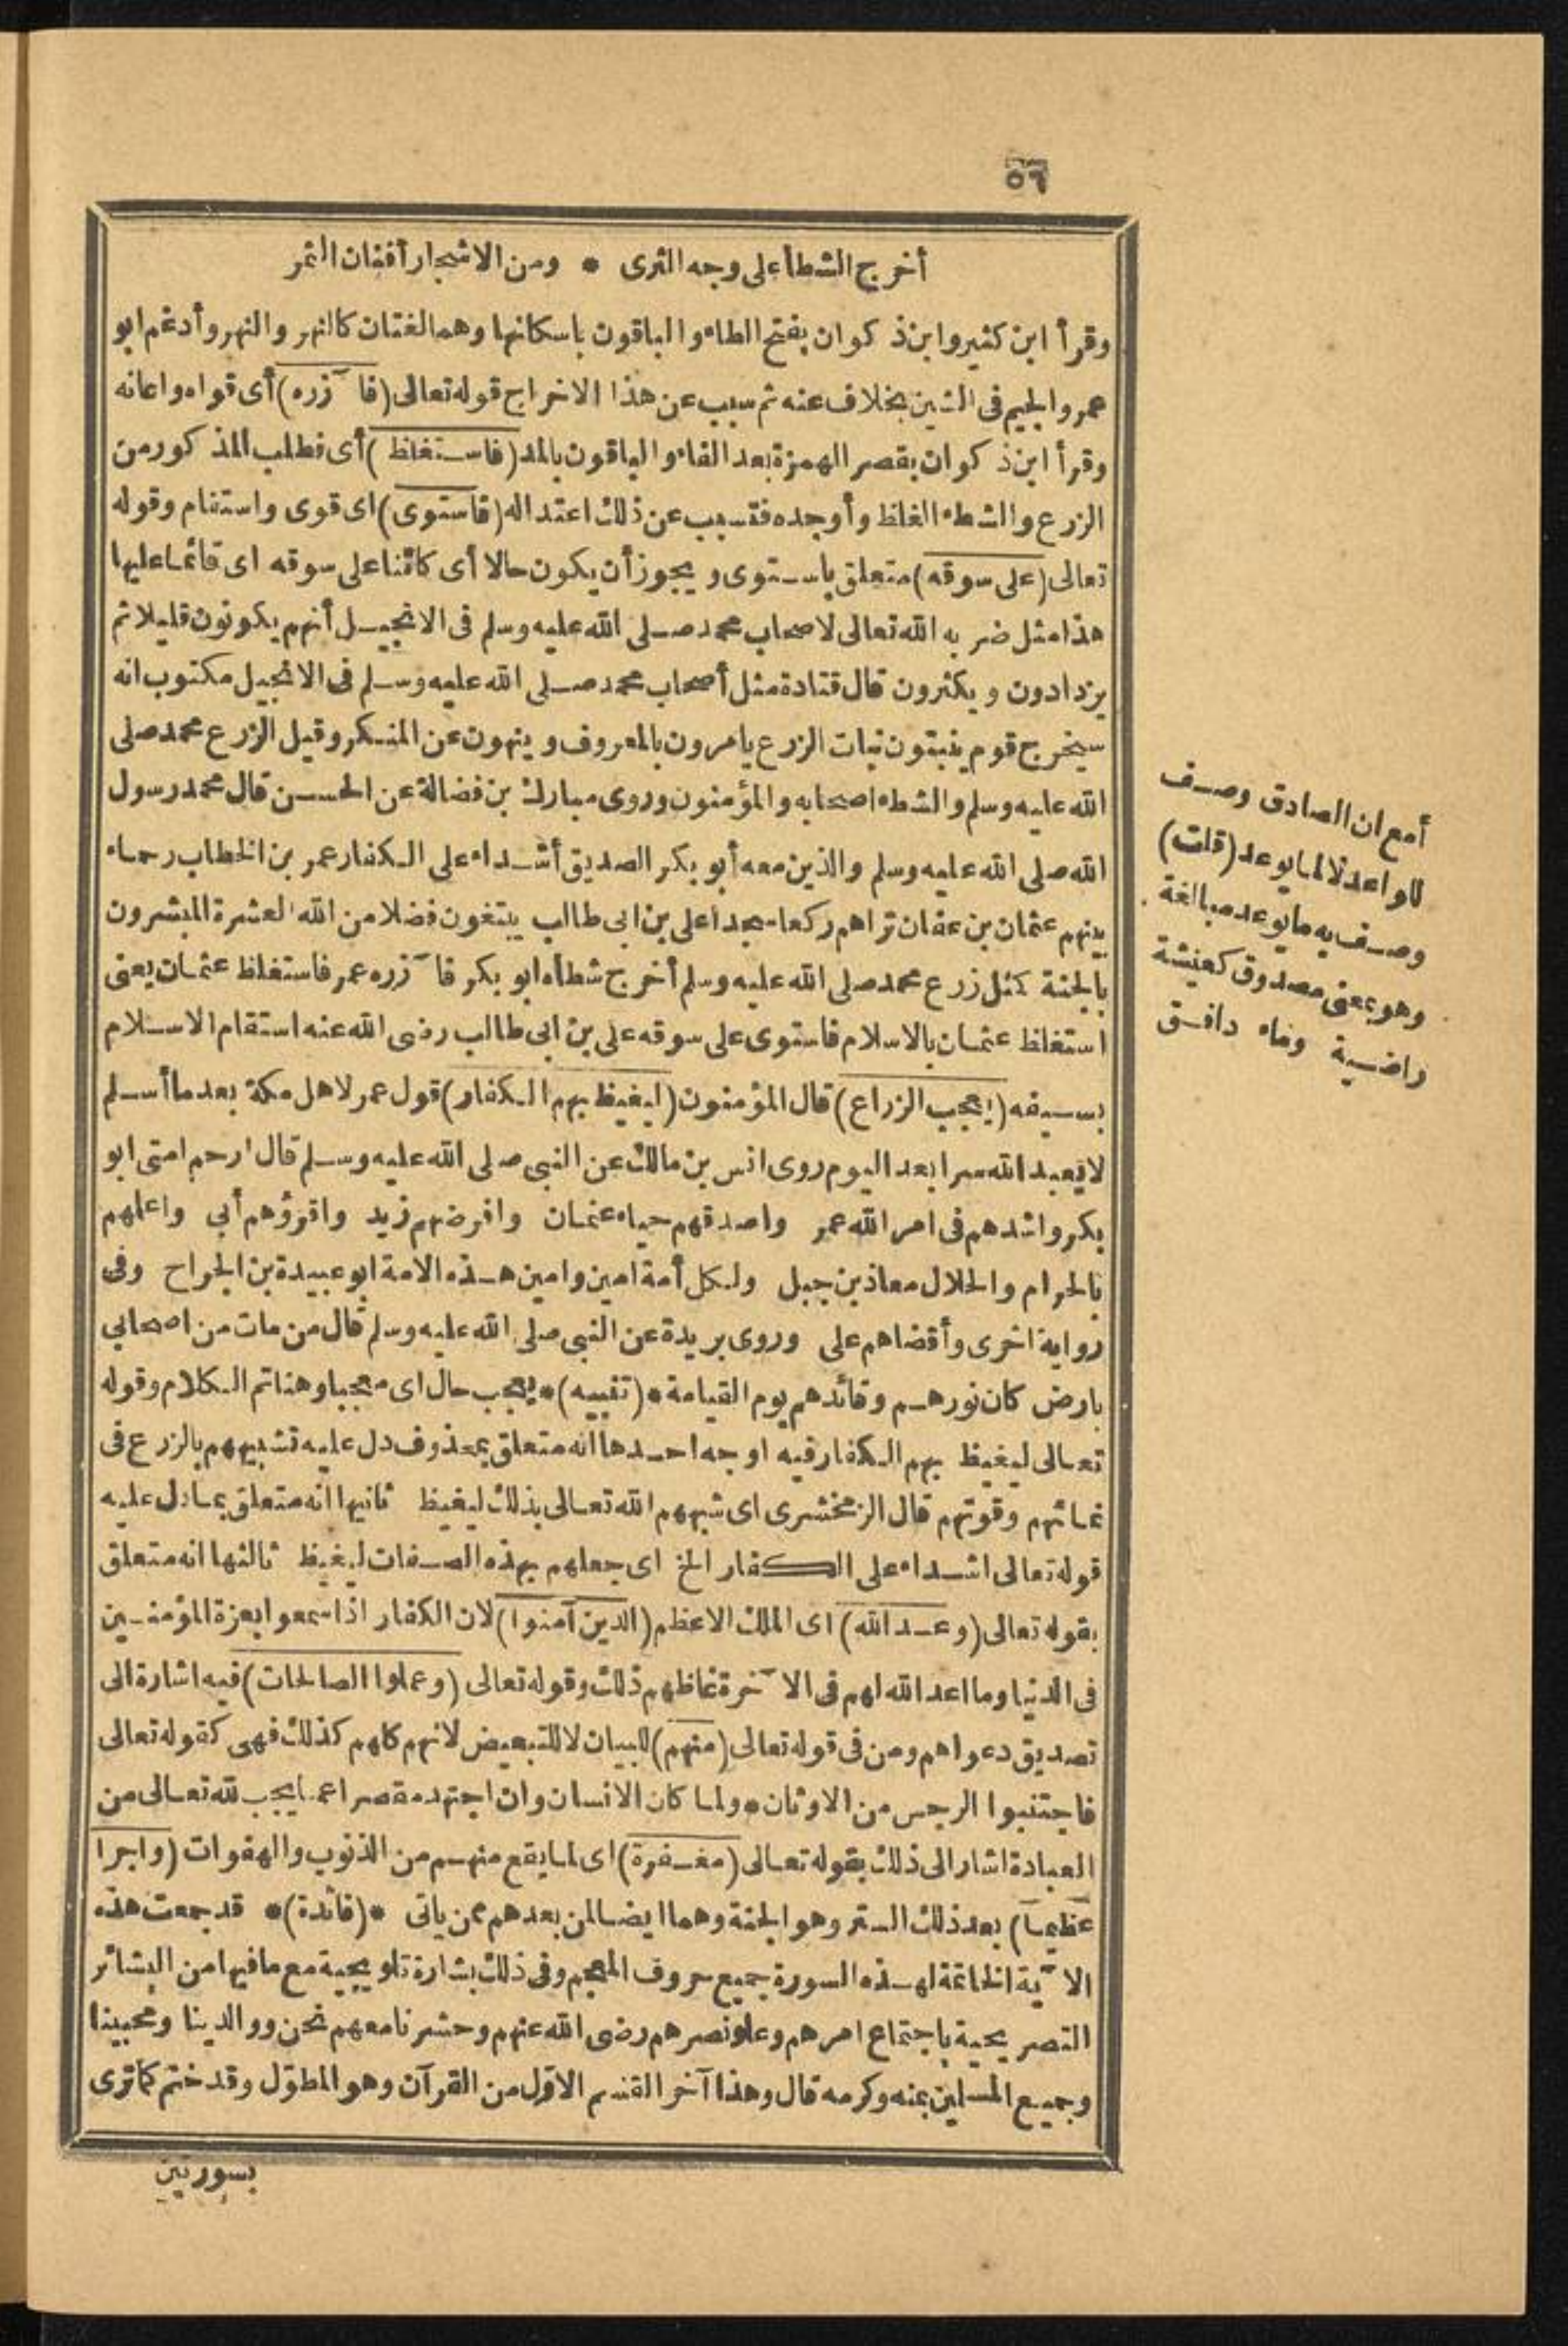 ٥٦
أخرج الشطأ على وجه الثرى * ومن الاشجار أفنان الثمر
وقرأ ابن كثير وابن ذكوان بفتح الطاء والباقون باسكانها وهما لغتان كالنهر والنهر وأدغم ابو
عمرو الجيم فى الشين بخلاف عنه ثم سبب عن هذا الاخراج قوله تعالى (فا ٓزره) أى قواه واعانه
وقرأ ابن ذكوان بقصر الهمزة بعد الفاء والباقون بالمد (فاستغلظ) أى فطلب المذكور من
الزرع والشطء الغلظ وأوجده فتسبب عن ذلك اعتداله (فاستوى) اى قوى واستقام وقوله
تعالى (على سوقه) متعلق باستوى ويجوز أن يكون حالا أى كائنا على سوقه اى قائما عليها
هذا مثل ضربه الله تعالى لاصحاب محمد صلى الله عليه وسلم فى الانجيل أنهم يكونون قليلا ثم
يزدادون ويكثرون قال قتادة مثل أصحاب محمد صلى الله عليه وسلم فى الانجيل مكتوب انه
سيخرج قوم ينبتون نبات الزرع يامرون بالمعروف وينهون عن المنكر وقيل الزرع محمد صلى
الله عليه وسلم والشطء اصحابه والمؤمنون وروى مبارك بن فضالة عن الحسن قال محمد رسول
الله صلى الله عليه وسلم والذين معه أبو بكر الصديق أشداء على الكفار عمر بن الخطاب رحماء
بينهم عثمان بن عفان تراهم ركعا سجدا على بن ابى طالب يبتغون فضلا من الله العشرة المبشرون
بالجنة كمثل زرع محمد صلى الله عليه وسلم أخرج شطأه ابو بكر فا ٓزره عمر فاستغلظ عثمان يعنى
استغلظ عثمان بالاسلام فاستوى على سوقه على بن ابى طالب رضى الله عنه استقام الاسلام
بسيفه (يعجب الزراع) قال المؤمنون (ليغيظ بهم الكفار) قول عمر لاهل مكة بعد ما أسلم
لا يعبد الله سرا بعد اليوم روى انس بن مالك عن النبى صلى الله عليه وسلم قال ارحم امتى ابو
بكر واشدهم فى امر الله عمر واصدقهم حياء عثمان وافرضهم زيد واقرؤهم أبي واعلهم
بالحرام والحلال معاذ بن جبل ولكل أمة امين وامين هذه الامة ابو عبيدة بن الجراح وفى
رواية اخرى وأقضاهم على وروى بريدة عن النبى صلى الله عليه وسلم قال من مات من اصحابي
بارض كان نورهم وقائدهم يوم القيامة * (تنبيه) * يعجب حال اى معجبا وهنا تم الكلام وقوله
تعالى ليغيظ بهم الكفار فيه اوجه احدها انه متعلق بمحذوف دل عليه تشبيههم بالزرع فى
نمائهم وقوتهم قال الزمخشرى اى شبههم الله تعالى بذلك ليغيظ ثانيها انه متعلق بما دل عليه
قوله تعالى اشداء على الكفار الخ اى جعلهم بهذه الصفات ليغيظ ثالثها انه متعلق
بقوله تعالى (وعد الله) اى الملك الاعظم (الذين آمنوا) لان الكفار اذا سمعوا بعزة المؤمنين
فى الدنيا وما اعد الله لهم فى الا ٓخرة غاظهم ذلك وقوله تعالى (وعملوا الصالحات) فيه اشارة الى
تصديق دعواهم ومن فى قوله تعالى (منهم) للبيان لا للتبعيض لانهم كلهم كذلك فهى كقوله تعالى
فاجتنبوا الرجس من الاوثان * ولما كان الانسان وان اجتهد مقصرا عما يجب لله تعالى من
العبادة اشار الى ذلك بقوله تعالى (مغفرة) اى لما يقع منهم من الذنوب والهفوات (واجرا
عظيما) بعد ذلك الستر وهو الجنة وهما ايضا لمن بعدهم ممن ياتى * (فائدة) * قد جمعت هذه
الا ٓية الخاتمة لهذه السورة جميع حروف المعجم وفى ذلك بشارة تلويحية مع ما فيها من البشائر
التصريحية باجتماع امرهم وعلو نصرهم رضى الله عنهم وحشرنا معهم نحن ووالدينا ومحبينا
وجميع المسلين بمنه وكرمه قال وهذا آخر القسم الاوّل من القرآن وهو المطوّل وقد ختم كما ترى
بسورتين
أمع ان الصادق وصف
للواعد لا لما يوعد (قلت)
وصف به ما يوعد مبالغة
وهو بمعنى مصدوق كعيشة
راضية وماء دافق